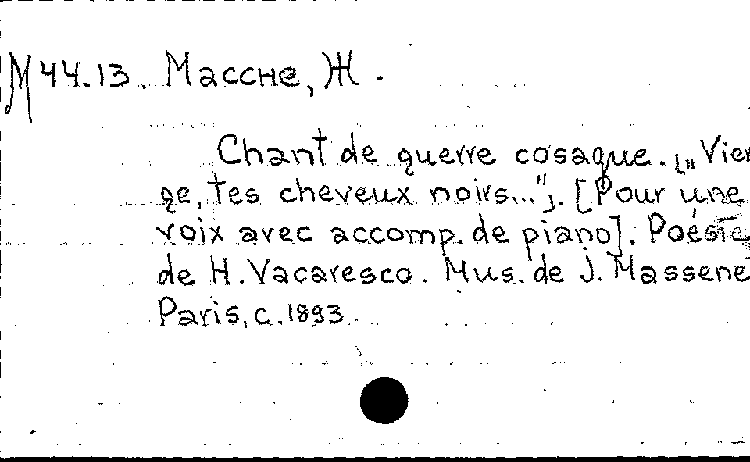 М 44.13. Массне, Ж.
Chant de guerre cosaque. [„Vier
ge, tes cheveux noirs..."]. [Pour une
voix avec accomp. de piano]. Poésie
de H. Vacaresco. Mus. de J. Massene
Paris, c. 1893